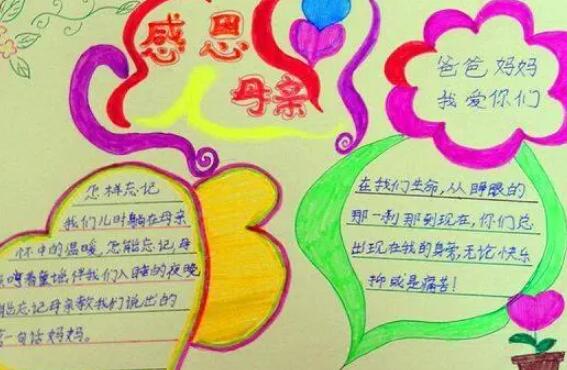 感恩
母亲
爸爸妈妈
我爱你们
怎样忘记
我们儿时躺在母亲
怀中的温暖,怎能忘记,母
哼着童谣伴我们入睡的夜晚
能忘记母亲教我们说出的
一句话妈妈。
在我们生命,从睁眼的
那一刹那到现在,你们总
出现在我的身旁,无论快乐
抑或是痛苦!